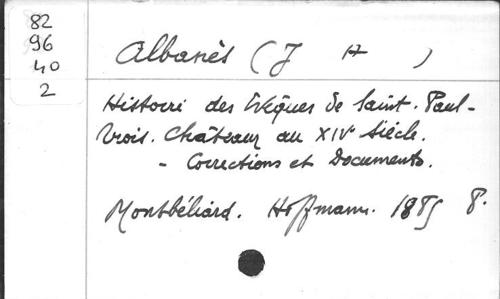 82
96
40
2
Albanès (J H )
Histoire des Evêques de Saint-Paul-
Trois-Châteaux au XIVe siècle.
- Corrections et Documents.
Montbéliard. Hoffmann. 1885 8.